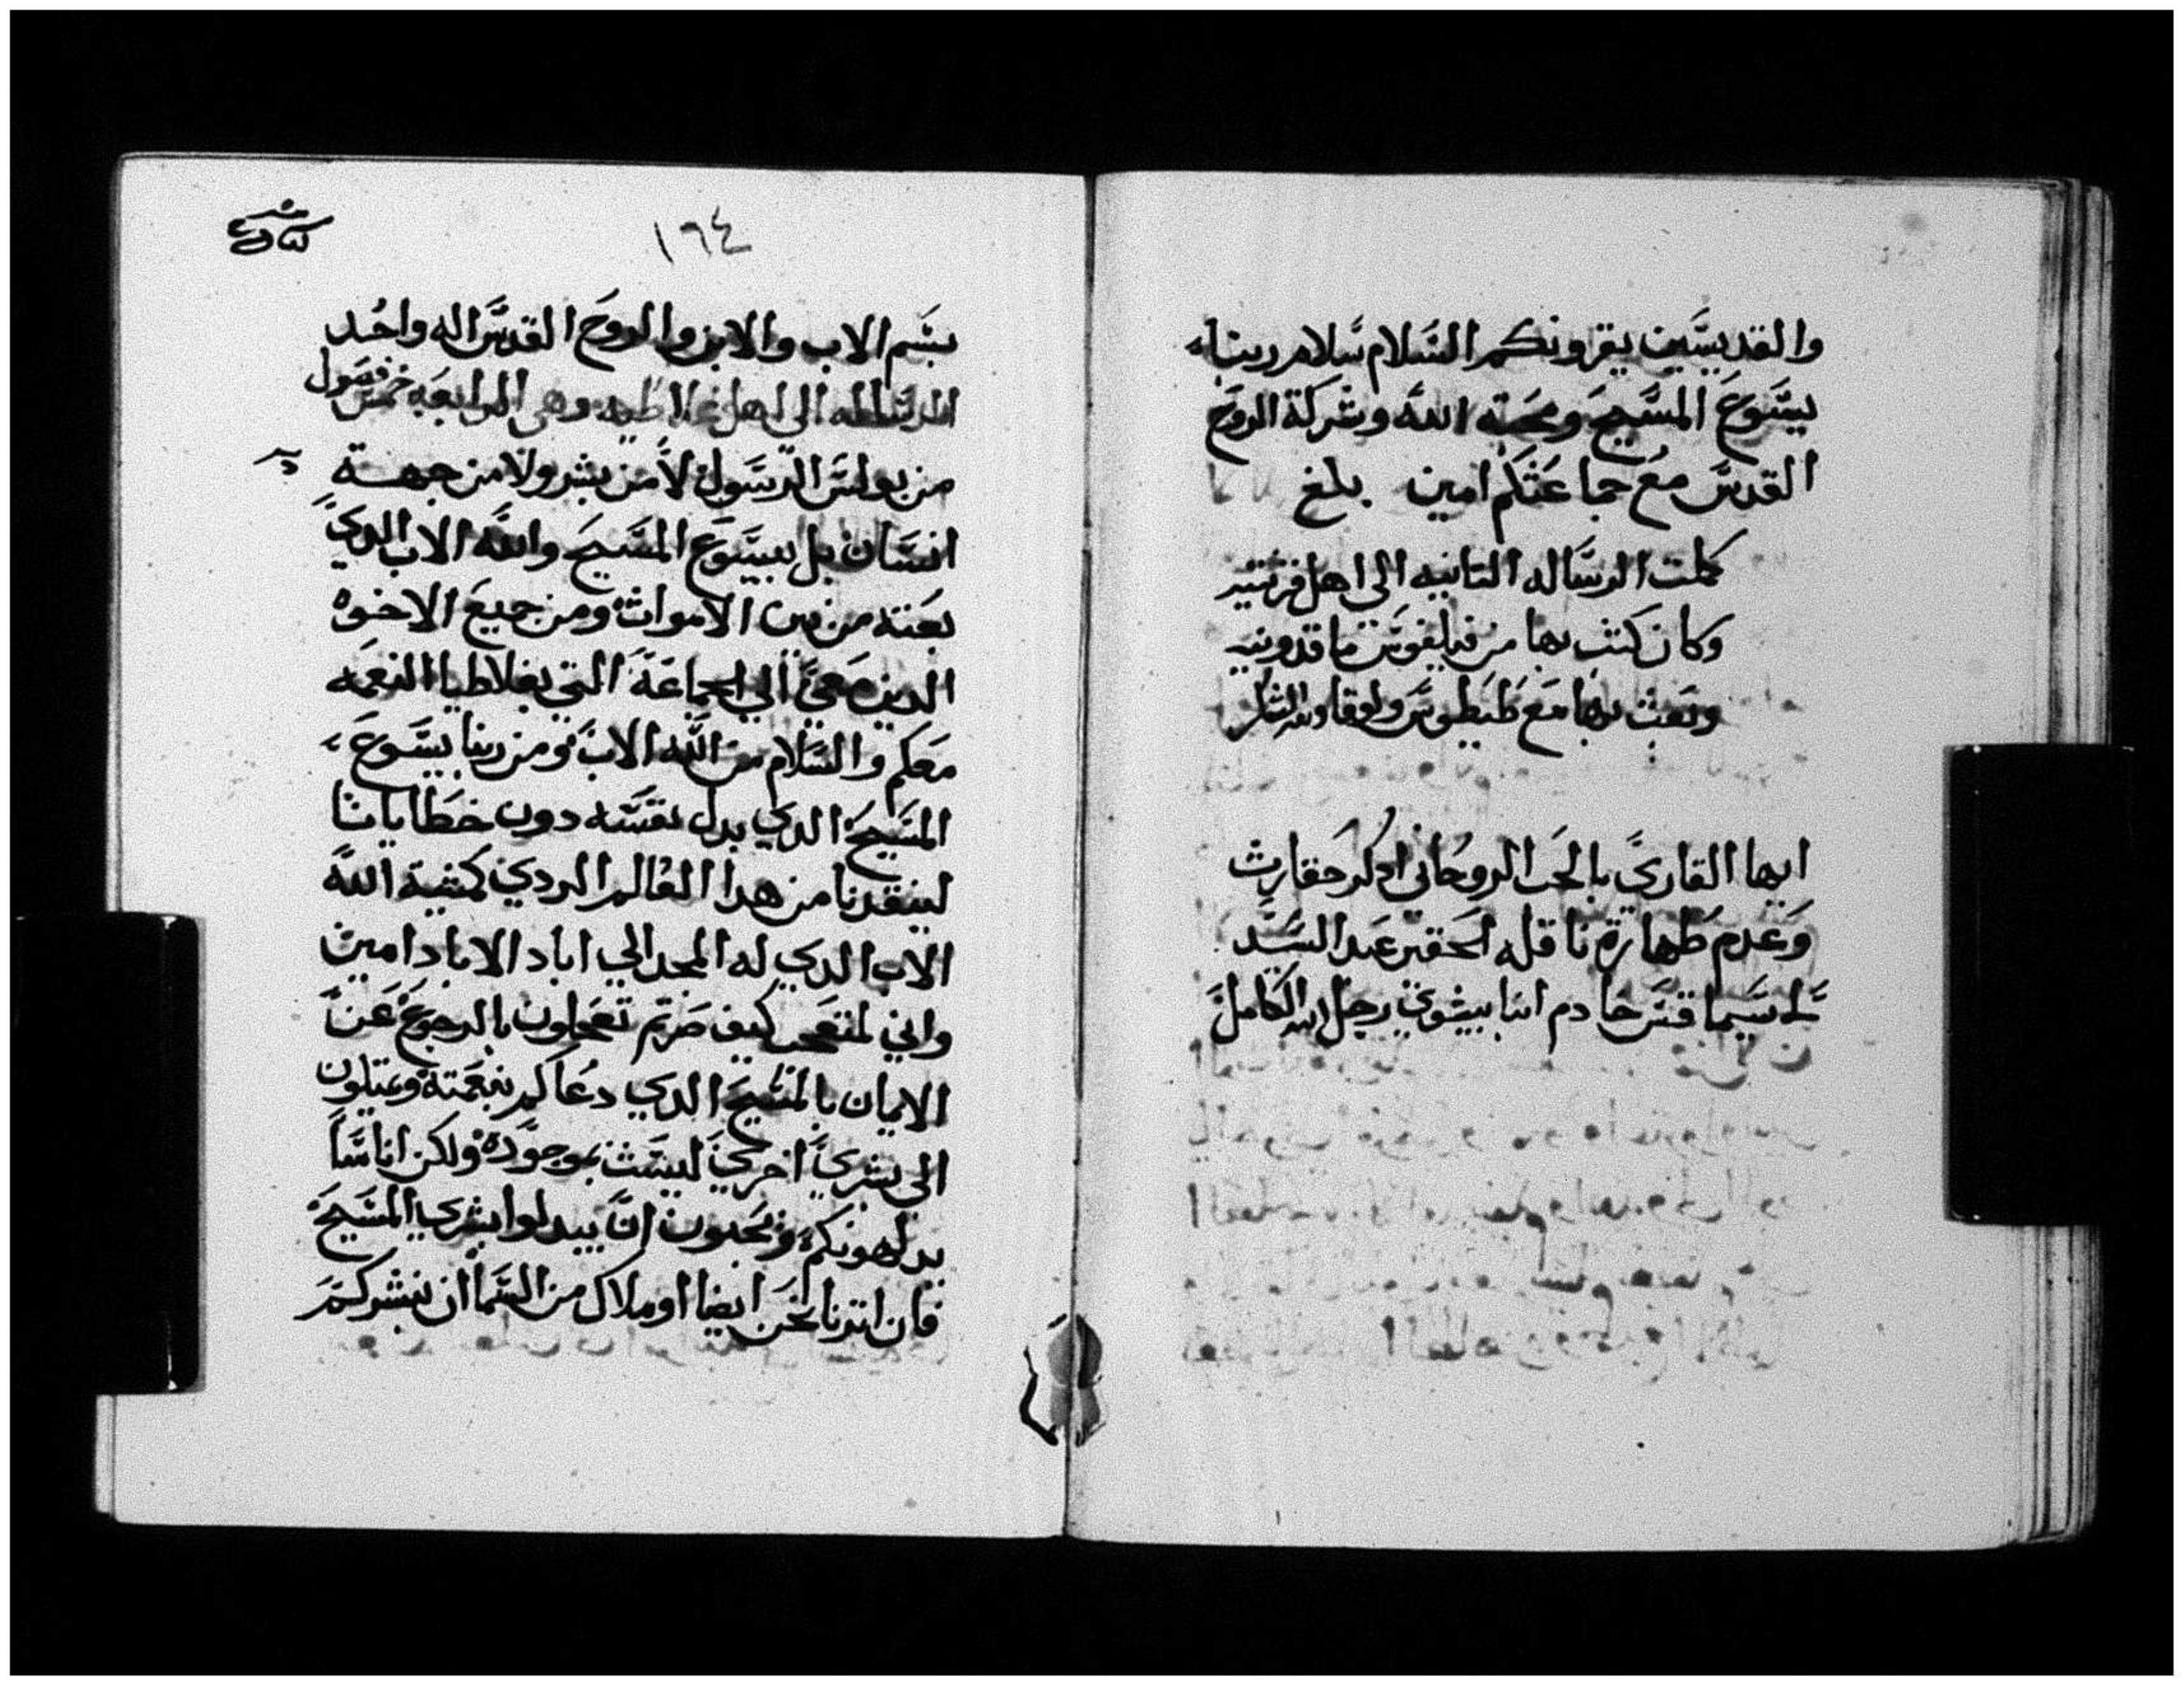 والقديسين يقرونكم السلام سلام ربنا
يسوع المسيح ومحبة الله وشركة الروح
القدس مع جماعتكم امين بلغ
كملت الرساله التانيه الي اهل قرنتيه
وكان كتب بها من فيلبوس ماقدونيه
وبعث بها مع طيطوس ولوقا
ايها القاري بالحب الروحاني ادكر حقارت
وعدم طهارة ناقله الحقير عبد السيد
قس خادم انبا بيشوي برجل الكامل
١٦٤
بسم الاب والابن والروح القدس اله واحد
الرساله الى اهل غلاطيه وهي الرابعه خمس فصول
من بولس الرسول لا من بشر ولا من جهة
انسان بل بيسوع المسيح والله الاب الدي
بعته من بين الاموات ومن جميع الاخوه
الدين معي الي الجماعة التي بغلاطيا النعمه
معكم والسلام من الله الاب ومن ربنا يسوع
المسيح الدي بدل نفسه دون خطايانا
لينقدنا من هدا العالم الردي كمشية الله
الاب الدي له المجد الي اباد الاباد امين
واني لمتعجب كيف صرتم تعجلون بالرجوع عن
الايمان بالمسيح الدي دعاكم بنعمته وتميلون
الي بشري اخري ليست بموجوده ولكن اناسا
يدلهونكم ويحبون ان يبدلوا بشري المسيح
فان اترنا نحن ايضا او ملاك من السما ان نبشركم